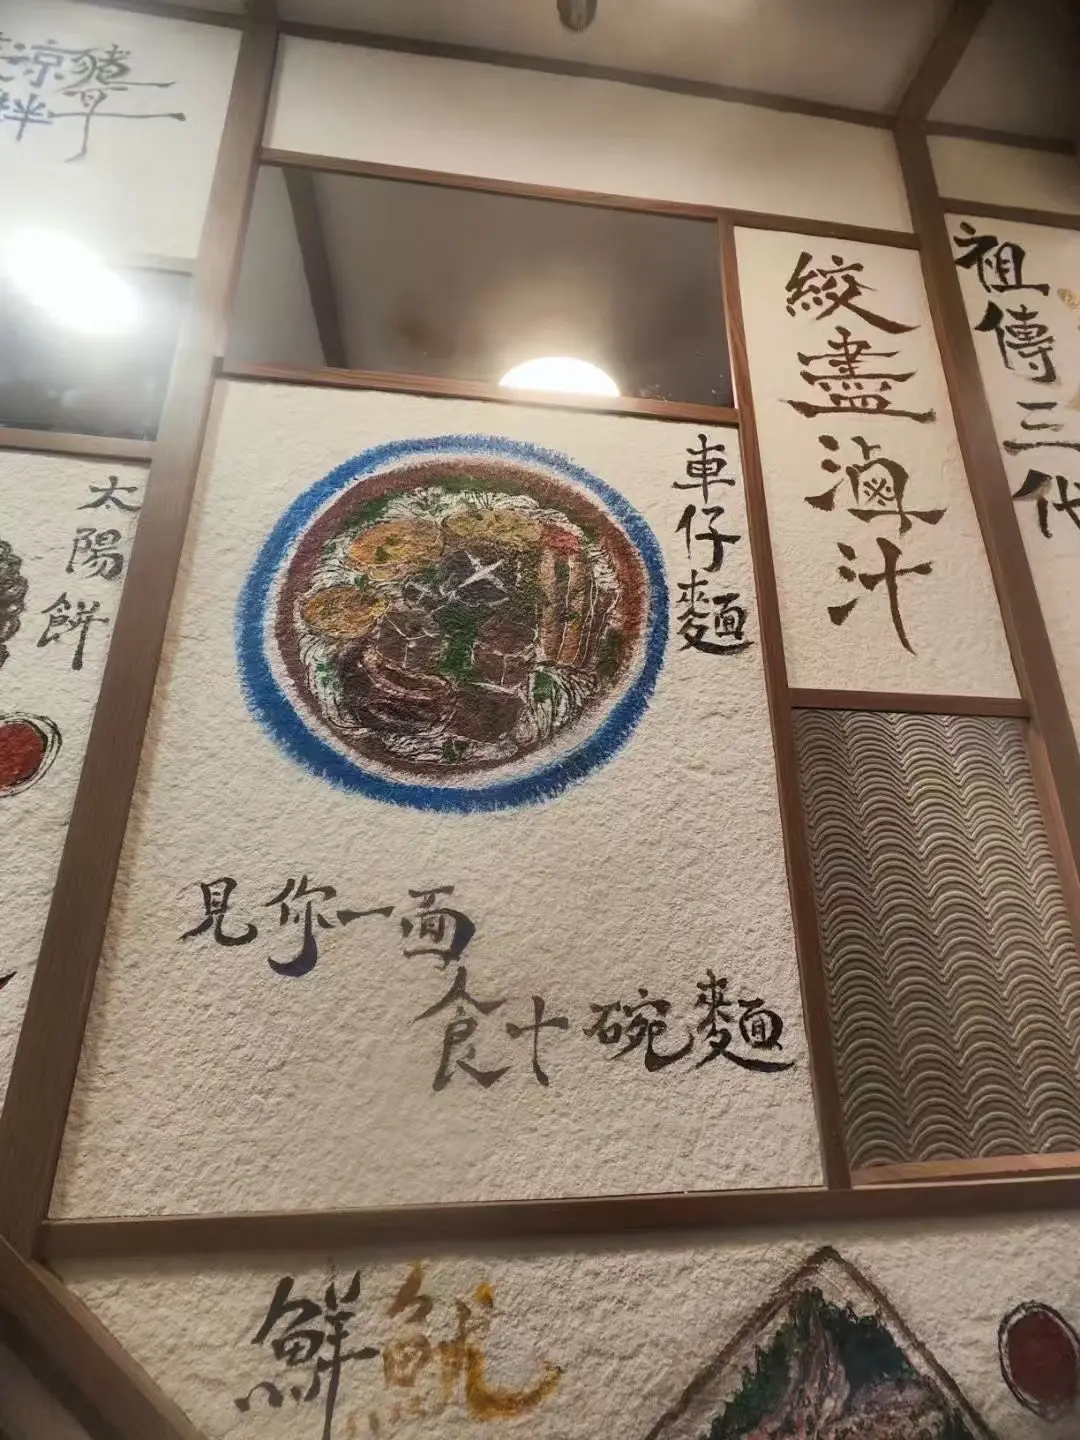 涼豬
拌手
太陽餅
車仔麵
絞盡滷汁
祖傳三代
見你一面
食十碗麵
鮮魷